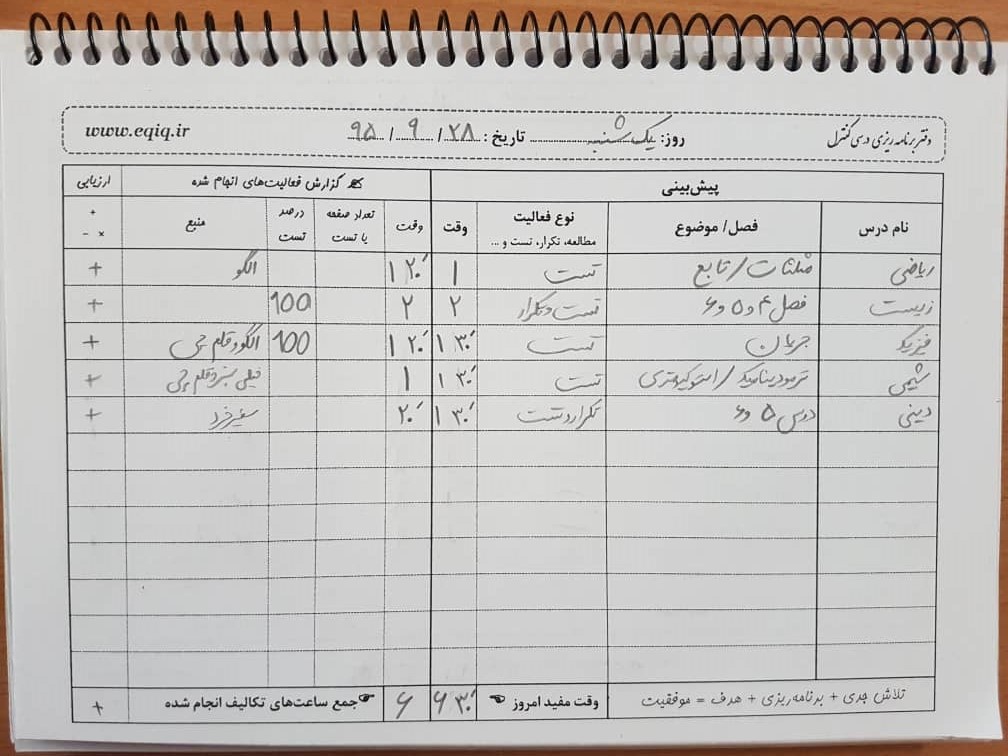 دفتر برنامه ریزی درسی کنترل روز: یک شنبه تاریخ: ۲۸ / ۹ / ۹۵ www.eqiq.ir
پیش‌بینی گزارش فعالیت‌های انجام شده ارزیابی
نام درس فصل/ موضوع نوع فعالیت مطالعه، تکرار، تست و ... وقت وقت تعداد صفحه یا تست درصد تست منبع + × -
ریاضی مثلثات/تابع تست ۱ ۱ ۲۰′ الگو +
زیست فصل ۴ و ۵ و ۶ تست و تکرار ۲ ۲ 100 +
فیزیک جریان تست ۱ ۳۰′ ۱ ۲۰′ 100 الگو و قلم چی +
شیمی ترمودینامیک/استوکیومتری تست ۱ ۳۰′ ۱ خیلی سبز و قلم چی +
دینی درس ۵ و ۶ تکرار و تست ۱ ۳۰′ ۲۰′ سفیر خرد +
تلاش جدی + برنامه ریزی + هدف = موفقیت وقت مفید امروز ۶ ۳۰′ ۶ جمع ساعت‌های تکالیف انجام شده +